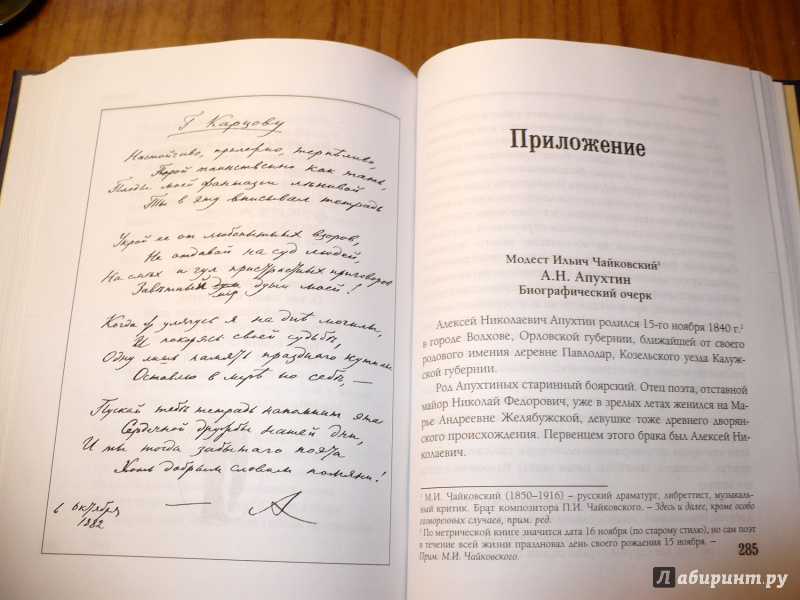 Г Карцову
Настойчиво, прилежно, терпѣливо,
Порой таинственно какъ тать,
Плоды моей фантазіи лѣнивой
Ты в эту вписывал тетрадь
Укрой ее от любопытных взоров,
Не отдавай на суд людей,
На смѣх и гул пристрастных приговоров
Завѣтный мір души моей!
Когда улягусь я на днѣ могилы,
И покорясь своей судьбѣ,
Одну лишь память праздного кутилы
Оставлю в мірѣ по себѣ, —
Пускай тебѣ тетрадь напомнит эта
Сердечной дружбы нашей дни,
И ты тогда забытого поэта
Хоть добрым словом помяни!
6 октября
1882
— А
Приложение
Модест Ильич Чайковский¹
А.Н. Апухтин
Биографический очерк
Алексей Николаевич Апухтин родился 15-го ноября 1840 г.²
в городе Волхове, Орловской губернии, ближайшей от своего
родового имения деревне Павлодар, Козельского уезда Калуж-
ской губернии.
Род Апухтиных старинный боярский. Отец поэта, отставной
майор Николай Федорович, уже в зрелых летах женился на Ма-
рье Андреевне Желябужской, девушке тоже древнего дворян-
ского происхождения. Первенцем этого брака был Алексей Ни-
колаевич.
¹ М.И. Чайковский (1850–1916) – русский драматург, либреттист, музыкаль-
ный критик. Брат композитора П.И. Чайковского. – Здесь и далее, кроме особо
оговоренных случаев, прим. ред.
² По метрической книге значится дата 16 ноября (по старому стилю), но сам поэт
в течение всей жизни праздновал день своего рождения 15 ноября. –
Прим. М.И. Чайковского.
285
Лабиринт.ру